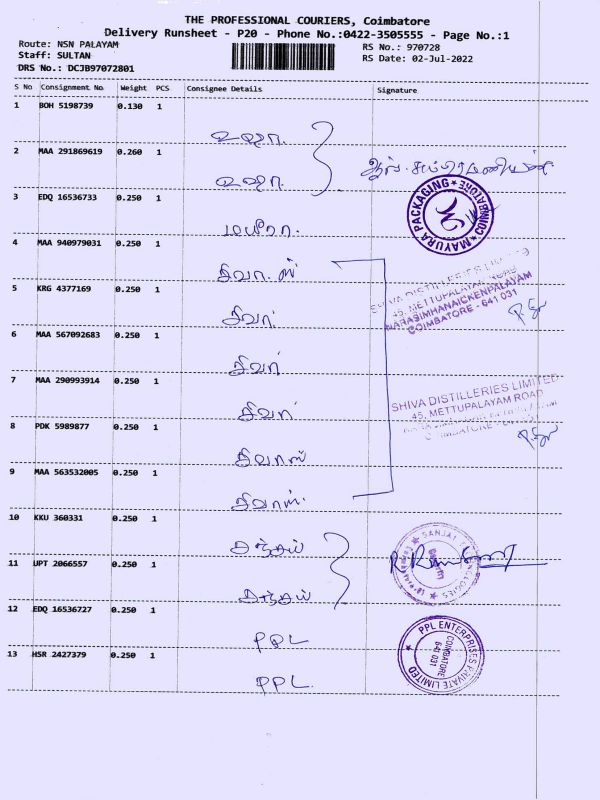 THE PROFESSIONAL COURIERS, Coimbatore
Delivery Runsheet - P20 - Phone No.:0422-3505555 - Page No.:1
Route: NSN PALAYAM
RS No.: 970728
Staff: SULTAN
RS Date: 02-Jul-2022
DRS No.: DCJB97072801
S No Consignment No. Weight PCS Consignee Details Signature
1 BOH 5198739 0.130 1
உஷா.
2 MAA 291869619 0.260 1
உஷா.
3 EDQ 16536733 0.250 1
MAYURA PACKAGING ★ COIMBATORE ★
மயூரா.
4 MAA 940979031 0.250 1
சிவா
5 KRG 4377169 0.250 1
SHIVA DISTILLERIES LIMITED
45, METTUPALAYAM ROAD
NARASIMHANAICKENPALAYAM
COIMBATORE - 641 031
சிவா
6 MAA 567092683 0.250 1
சிவா
7 MAA 290993914 0.250 1
SHIVA DISTILLERIES LIMITED
45, METTUPALAYAM ROAD
சிவா
8 PDK 5989877 0.250 1
சிவாஸ்
9 MAA 563532005 0.250 1
சிவாஸ்.
10 KKU 360331 0.250 1
சஞ்சய்
11 UPT 2066557 0.250 1
சஞ்சய்
12 EDQ 16536727 0.250 1
PPL
PPL ENTERPRISES PRIVATE LIMITED ★
COIMBATORE
641 031
13 HSR 2427379 0.250 1
PPL.